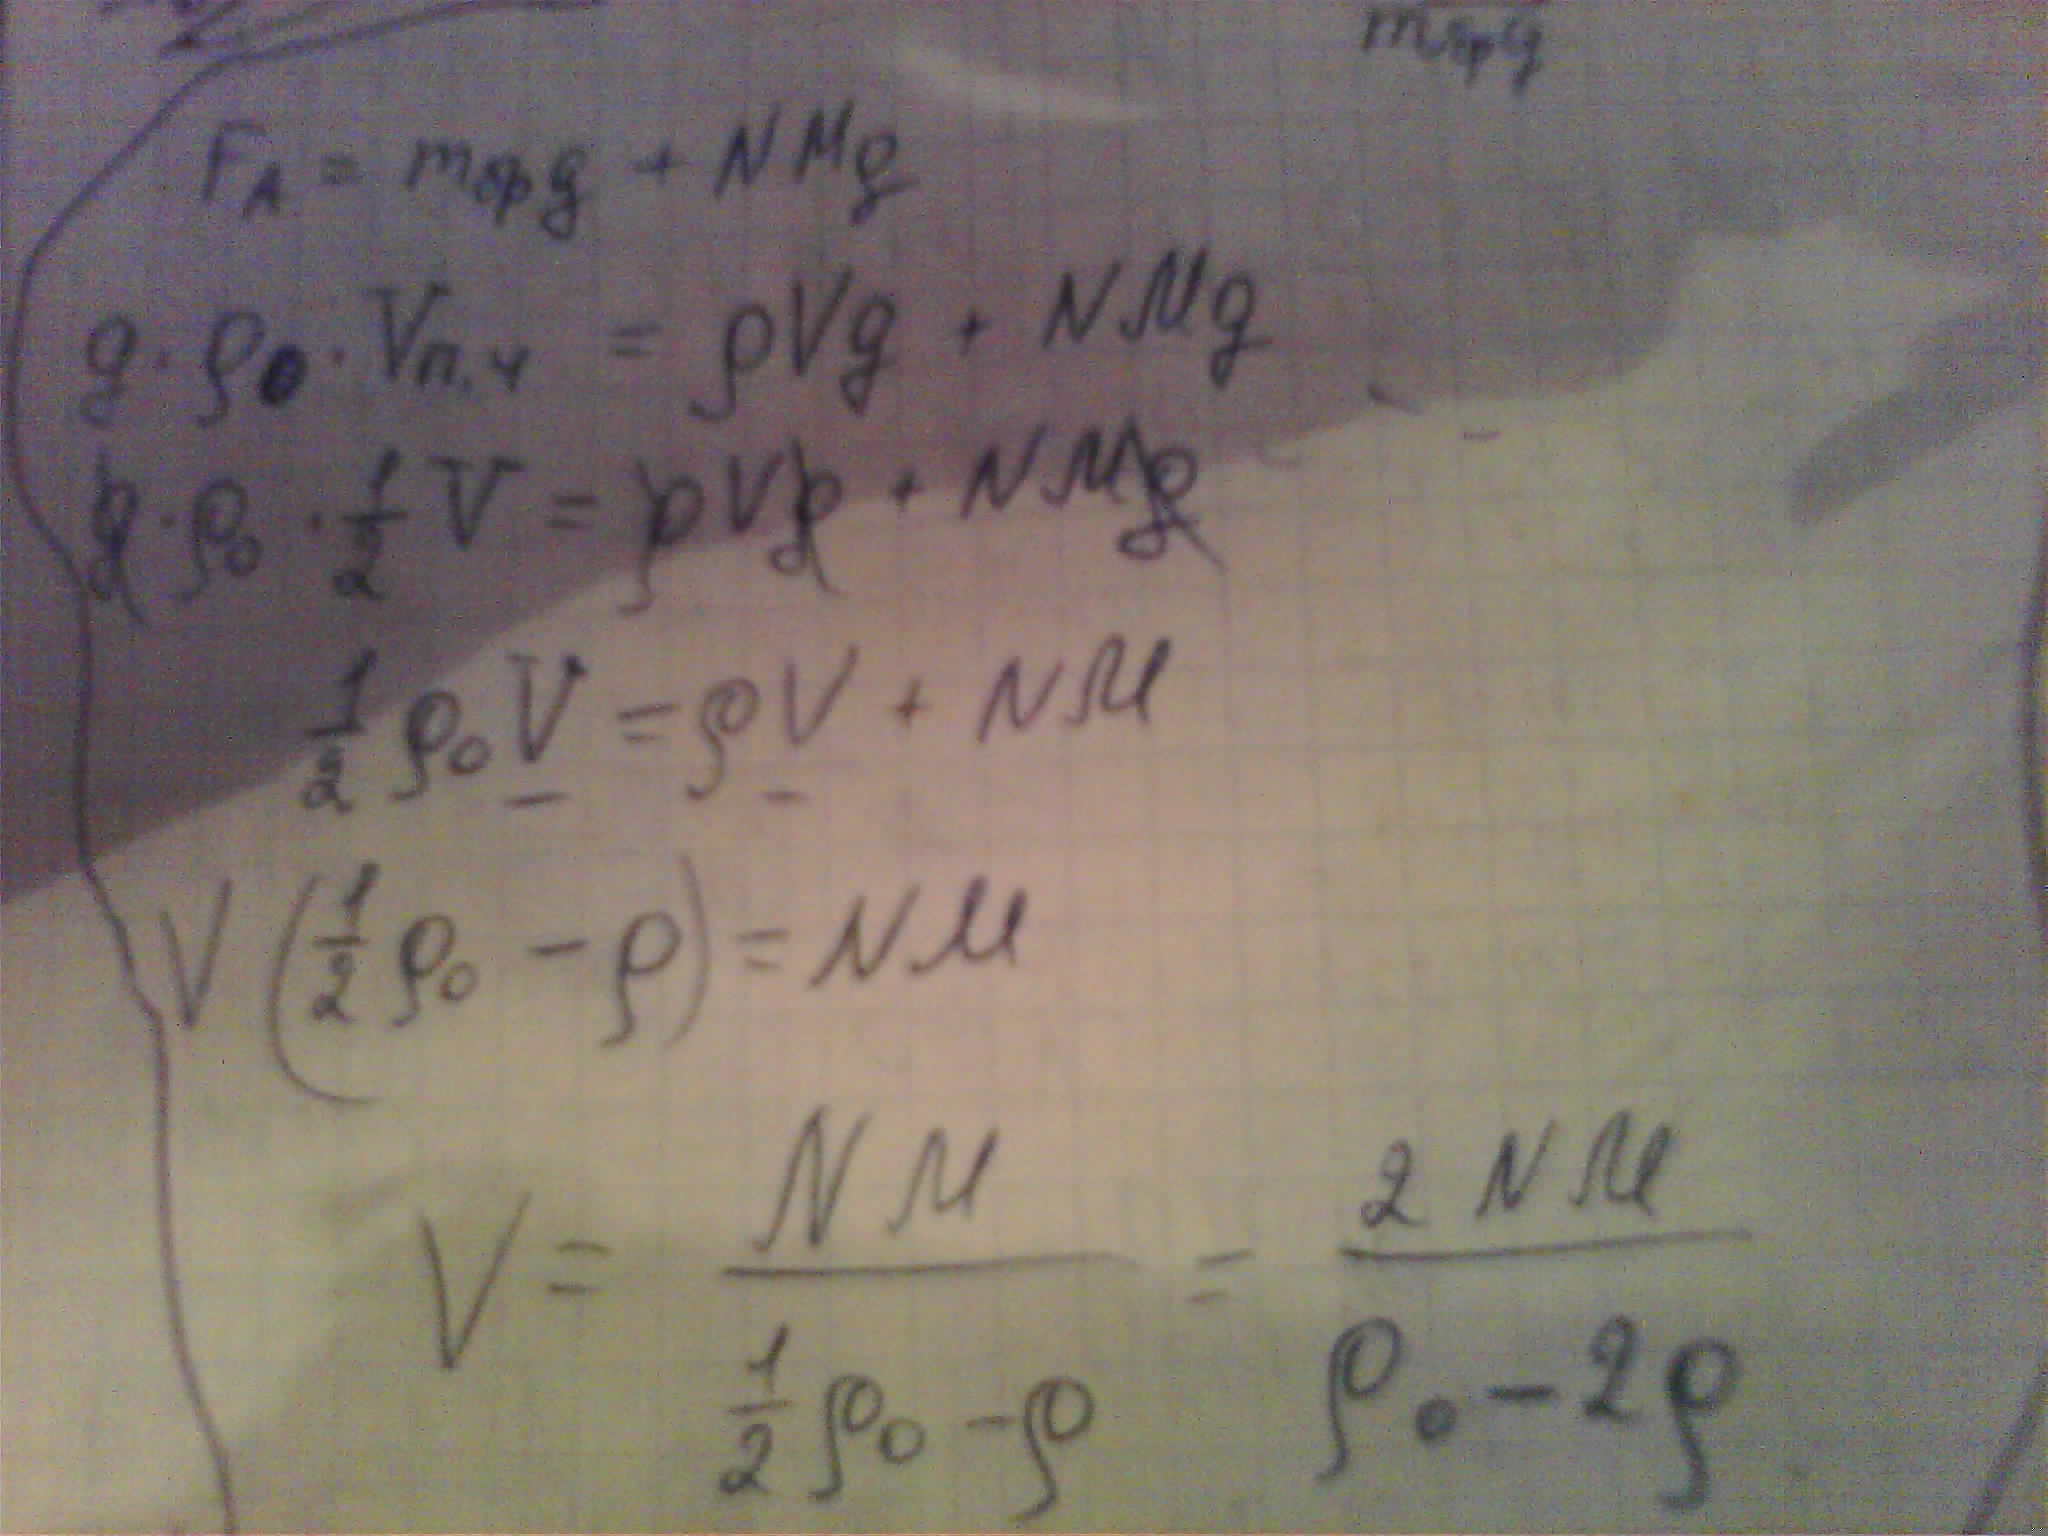 m бр g
F_A = m_бр g + NMg
g · ρ₀ · V_п.ч = ρVg + NMg
g · ρ₀ · 1/2 V = ρVg + NMg
1/2 ρ₀V = ρV + NM
V(1/2 ρ₀ − ρ) = NM
V = NM / (1/2 ρ₀ − ρ) = 2NM / (ρ₀ − 2ρ)